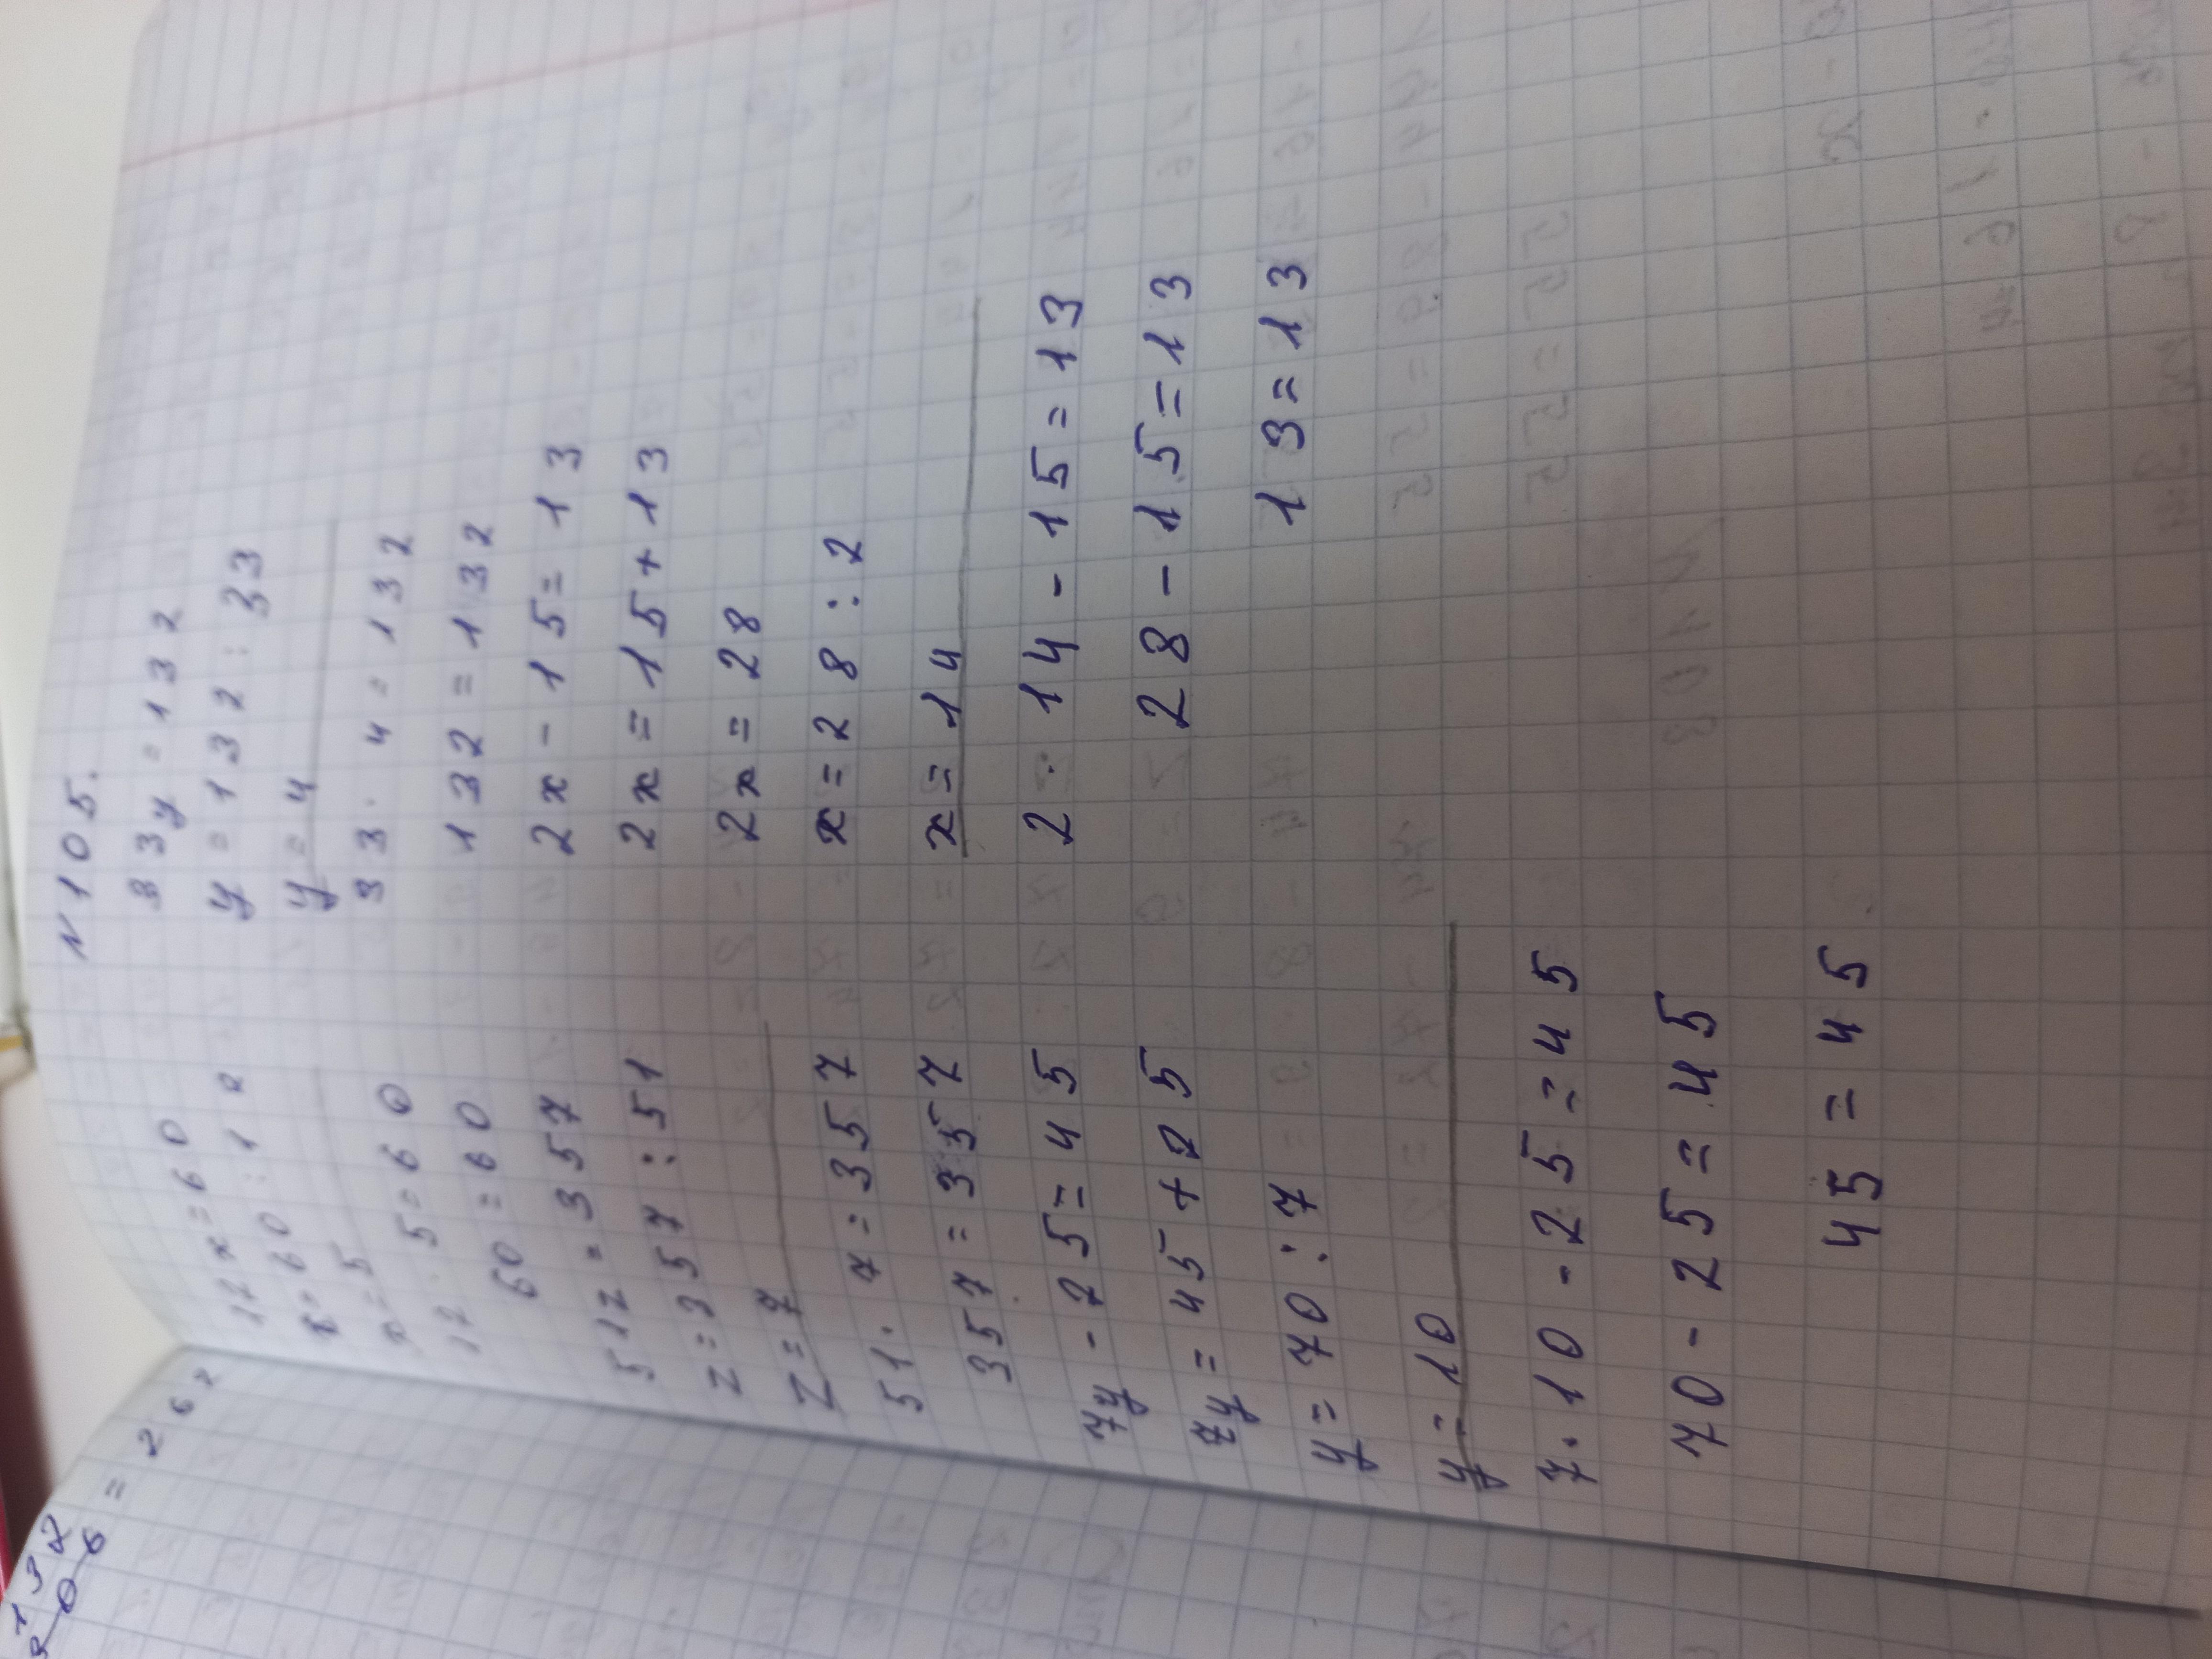 N 105.
12x=60
x=60:12
x=5
12·5=60
60=60
51z=357
z=357:51
z=7
51·7=357
357=357
7y-25=45
7y=45+25
y=70:7
y=10
7·10-25=45
70-25=45
45=45
33y=132
y=132:33
y=4
33·4=132
132=132
2x-15=13
2x=15+13
2x=28
x=28:2
x=14
2·14-15=13
28-15=13
13=13